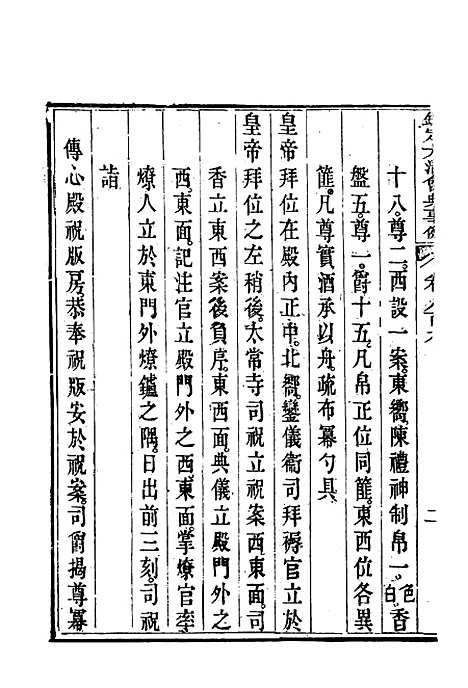 欽定大清會典事例
卷
二
十八。尊二。西設一案。東嚮。陳禮神制帛一。色白香
盤五。尊一。爵十五。凡帛正位同篚。東西位各異
篚。凡尊實酒承以舟。疏布冪勺具
皇帝拜位在殿內正中。北嚮。鑾儀衞司拜褥官立於
皇帝拜位之左稍後。太常寺司祝立祝案西東面。司
香立東西案後負序。東西面。典儀立殿門外之
西。東面。記注官立殿門外之西。東面。掌燎官率
燎人立於東門外燎鑪之隅。日出前三刻。司祝
詣
傳心殿祝版房恭奉祝版安於祝案。司爵揭尊冪